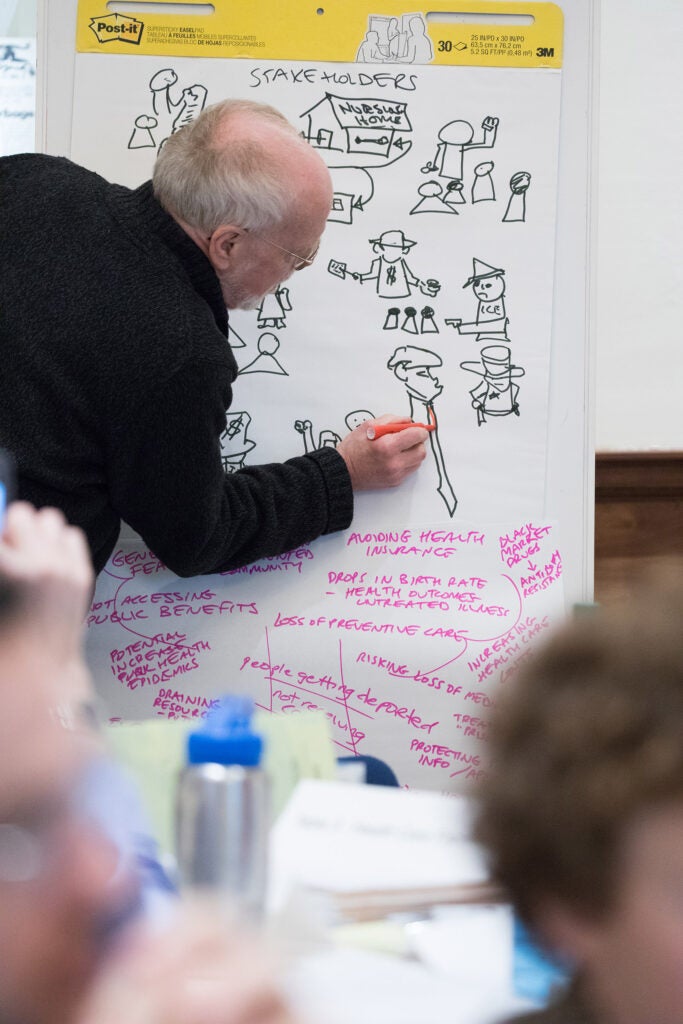 Post-it
SUPERSTICKY EASEL PAD
TABLEAU À FEUILLES MOBILES SUPERCOLLANTES
SUPERADHESIVAS BLOC DE HOJAS REPOSICIONABLES
30
25 IN/PO x 30 IN/PO
63,5 cm x 76,2 cm
5.2 SQ FT/PI² (0,48 m²)
3M
STAKEHOLDERS
NURSING
HOME
$
ICE
$
AVOIDING HEALTH
INSURANCE
BLACK
MARKET
DRUGS
COMMUNITY
DROPS IN BIRTH RATE
- HEALTH OUTCOMES
UNTREATED ILLNESS
ACCESSING
PUBLIC BENEFITS
LOSS OF PREVENTIVE CARE
INCREASING
HEALTH CARE
POTENTIAL
INCREASE
PUBLIC HEALTH
EPIDEMICS
RISKING LOSS OF
people getting deported
not receiving
DRAINING
PROTECTING
INFO